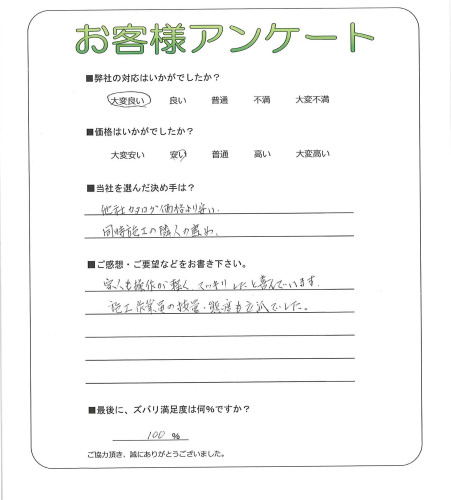 お客様アンケート
■弊社の対応はいかがでしたか？
大変良い 良い 普通 不満 大変不満
■価格はいかがでしたか？
大変安い 安い 普通 高い 大変高い
■当社を選んだ決め手は？
他社カタログ価格より安い.
同時施工の隣人の薦め.
■ご感想・ご要望などをお書き下さい。
家人も操作が軽く、スッキリしたと喜んでいます.
施工作業員の技量・態度も立派でした。
■最後に、ズバリ満足度は何%ですか？
100 %
ご協力頂き、誠にありがとうございました。